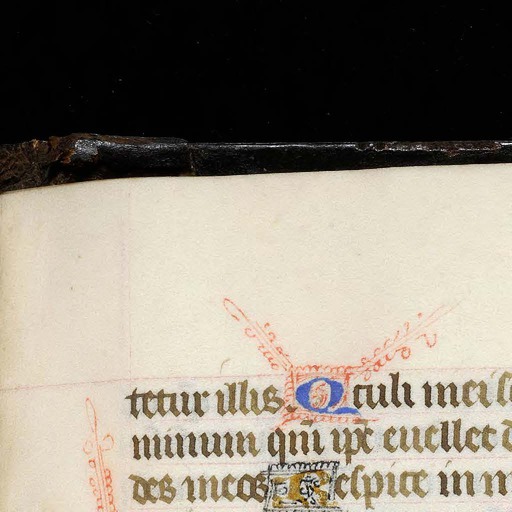 tetur illis. Oculi mei se
minum qm̄ ipē euellet d
des meos Respice in m